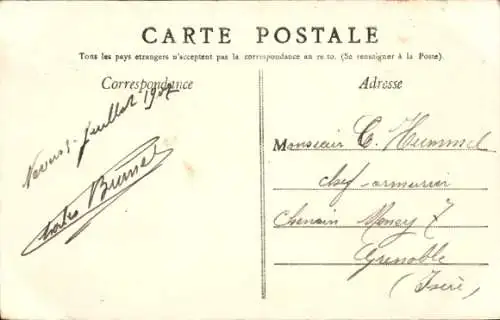 CARTE POSTALE
Tous les pays etrangers n'acceptent pas la correspondance au recto. (Se renseigner à la Poste).
Correspondance
Adresse
Juillet 1907
Charles
Monsieur C. Hummel
chef armurier
Chemin 7
Grenoble
(Isère)